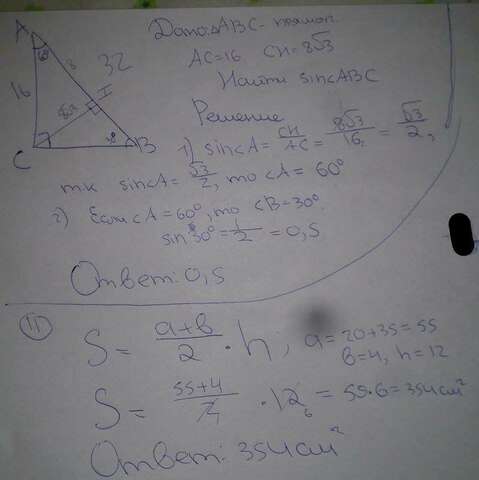 Дано: △ABC - прямоуг.
AC=16 CH=8√3
Найти sin∠ABC
Решение
1) sin∠A = CH/AC = 8√3/16 = √3/2,
т.к sin∠A = √3/2, то ∠A = 60°
2) Если ∠A = 60°, то ∠B = 30°.
sin 30° = 1/2 = 0,5
Ответ: 0,5
A
60
16
32
8√3
H
C
30°
B
11
S = a+b/2 · h; a = 20+35 = 55
b = 4, h = 12
S = 55+4/2 · 12 6 = 59·6 = 354 см²
Ответ: 354 см²